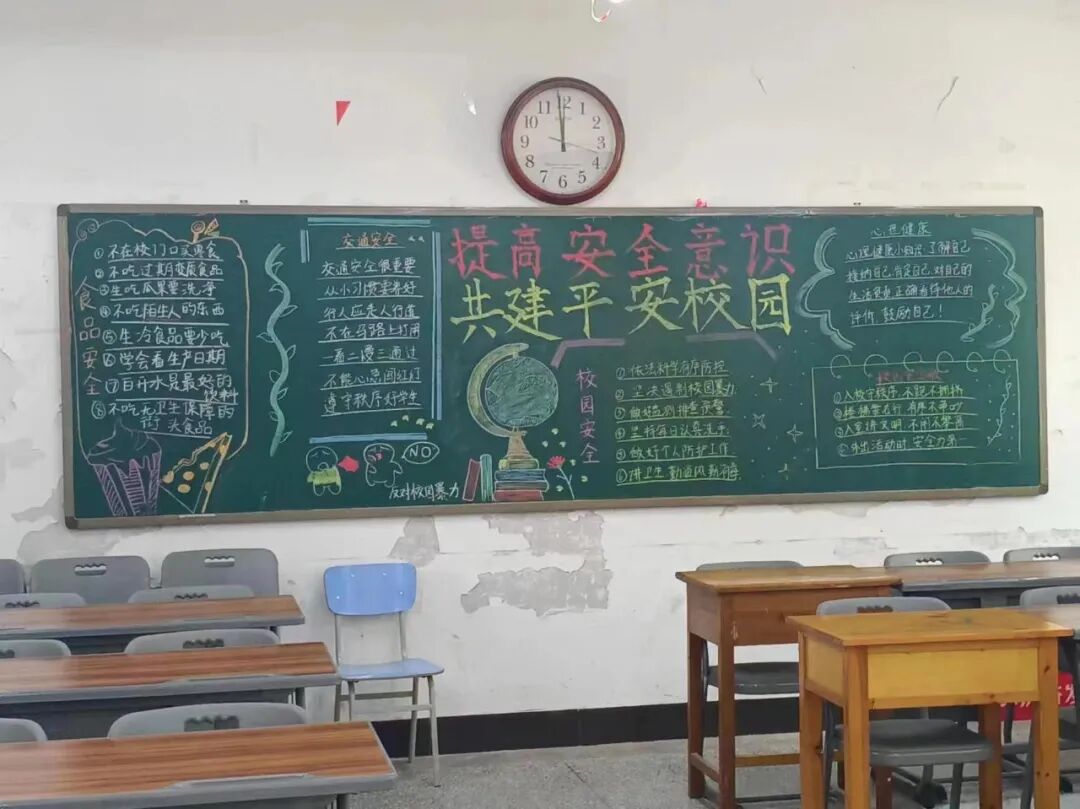 食品安全
①不在校门口买零食
②不吃过期变质食品
③生吃瓜果要洗净
④不吃陌生人的东西
⑤生冷食品要少吃
⑥学会看生产日期
⑦白开水是最好的
饮料
⑧不吃无卫生保障的
街头食品
交通安全
交通安全很重要
从小习惯要养好
行人应走人行道
不在马路上打闹
一看二慢三通过
不能心急闯红灯
遵守秩序好学生
NO
反对校园暴力
提高安全意识
共建平安校园
校园安全
①依法科学有序防控
②坚决遏制校园暴力
③做好
④坚持每日认真洗手
⑤做好个人防护工作
⑥讲卫生勤通风
心理健康
心理健康小知识:了解自己
接纳自己 肯定自己 对自己的
生活负责 正确看待他人的
评价 鼓励自己!
①入校守秩序
④外出活动时
12
1
2
3
4
5
6
7
8
9
10
11